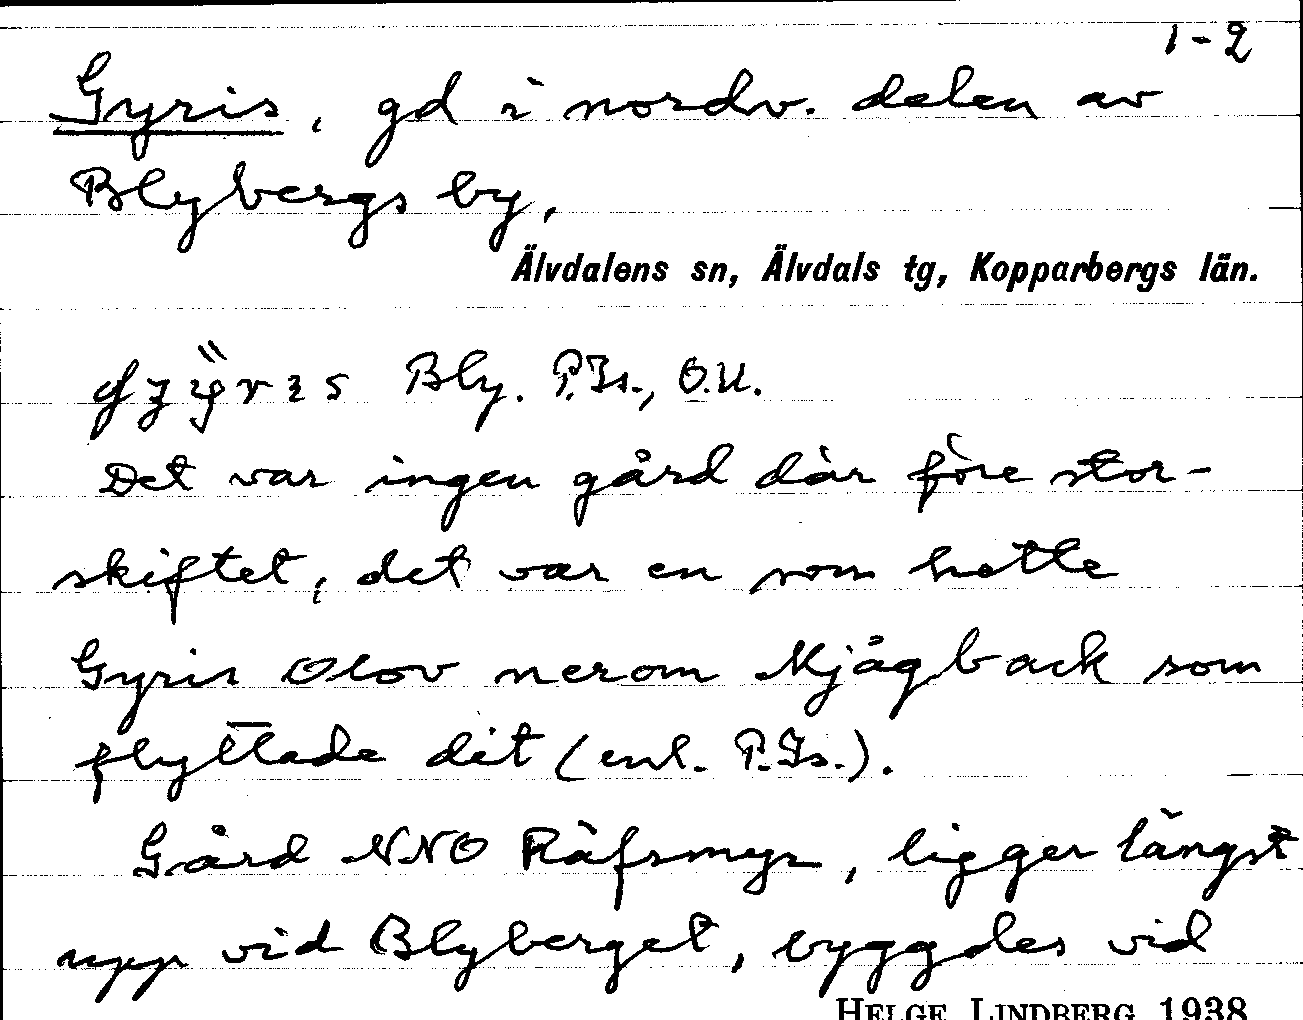 1-2
Gyris, gd i nordv. delen av
Blybergs by,
Älvdalens sn, Älvdals tg, Kopparbergs län.
Bly. P.Is., O.U.
Det var ingen gård där före stor-
skiftet, det var en som hette
Gyris Olov nerom Mjågback som
flyttade dit (enl. P.Is.).
Gård NNO Räfsmyr, ligger längst
upp vid Blyberget, byggdes vid
HELGE LINDBERG 1938